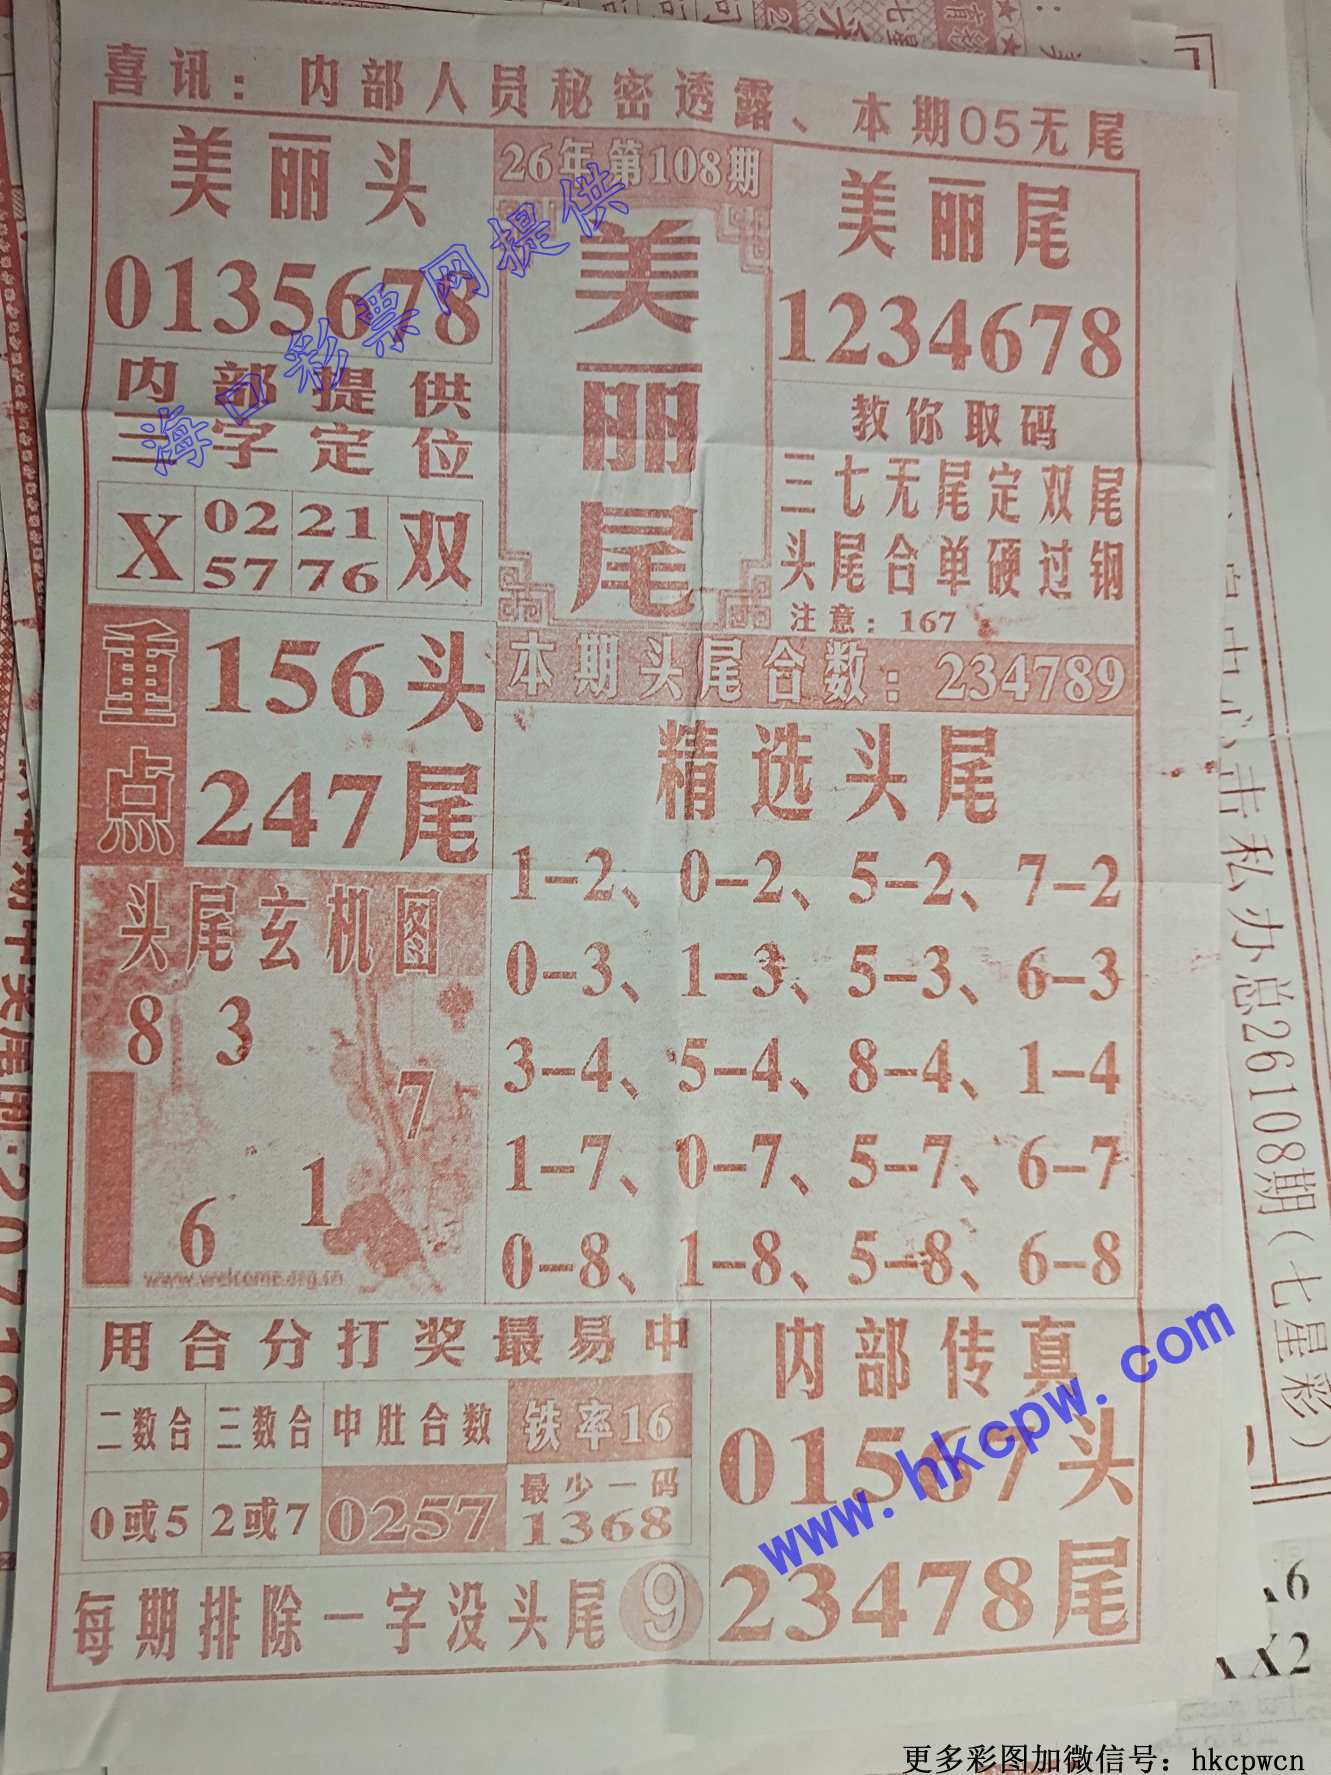 喜讯：内部人员秘密透露、本期05无尾
美丽头
0135678
内部提供
三字定位
X 02 57 21 76 双
26年第108期
美丽尾
美丽尾
1234678
教你取码
三七无尾定双尾
头尾合单硬过钢
注意：167
重点
156头
247尾
本期头尾合数：234789
精选头尾
1-2、0-2、5-2、7-2
0-3、1-3、5-3、6-3
3-4、5-4、8-4、1-4
1-7、0-7、5-7、6-7
0-8、1-8、5-8、6-8
头尾玄机图
8 3
7
1
6
www.welcome.org.cn
用合分打奖最易中
二数合 三数合 中肚合数 铁率16
0或5 2或7 0257 最少一码
1368
每期排除一字没头尾9
内部传真
01567头
23478尾
海口彩票网提供
www.hkcpw.com
击私办总26108期(七星彩)
X2
更多彩图加微信号：hkcpwcn